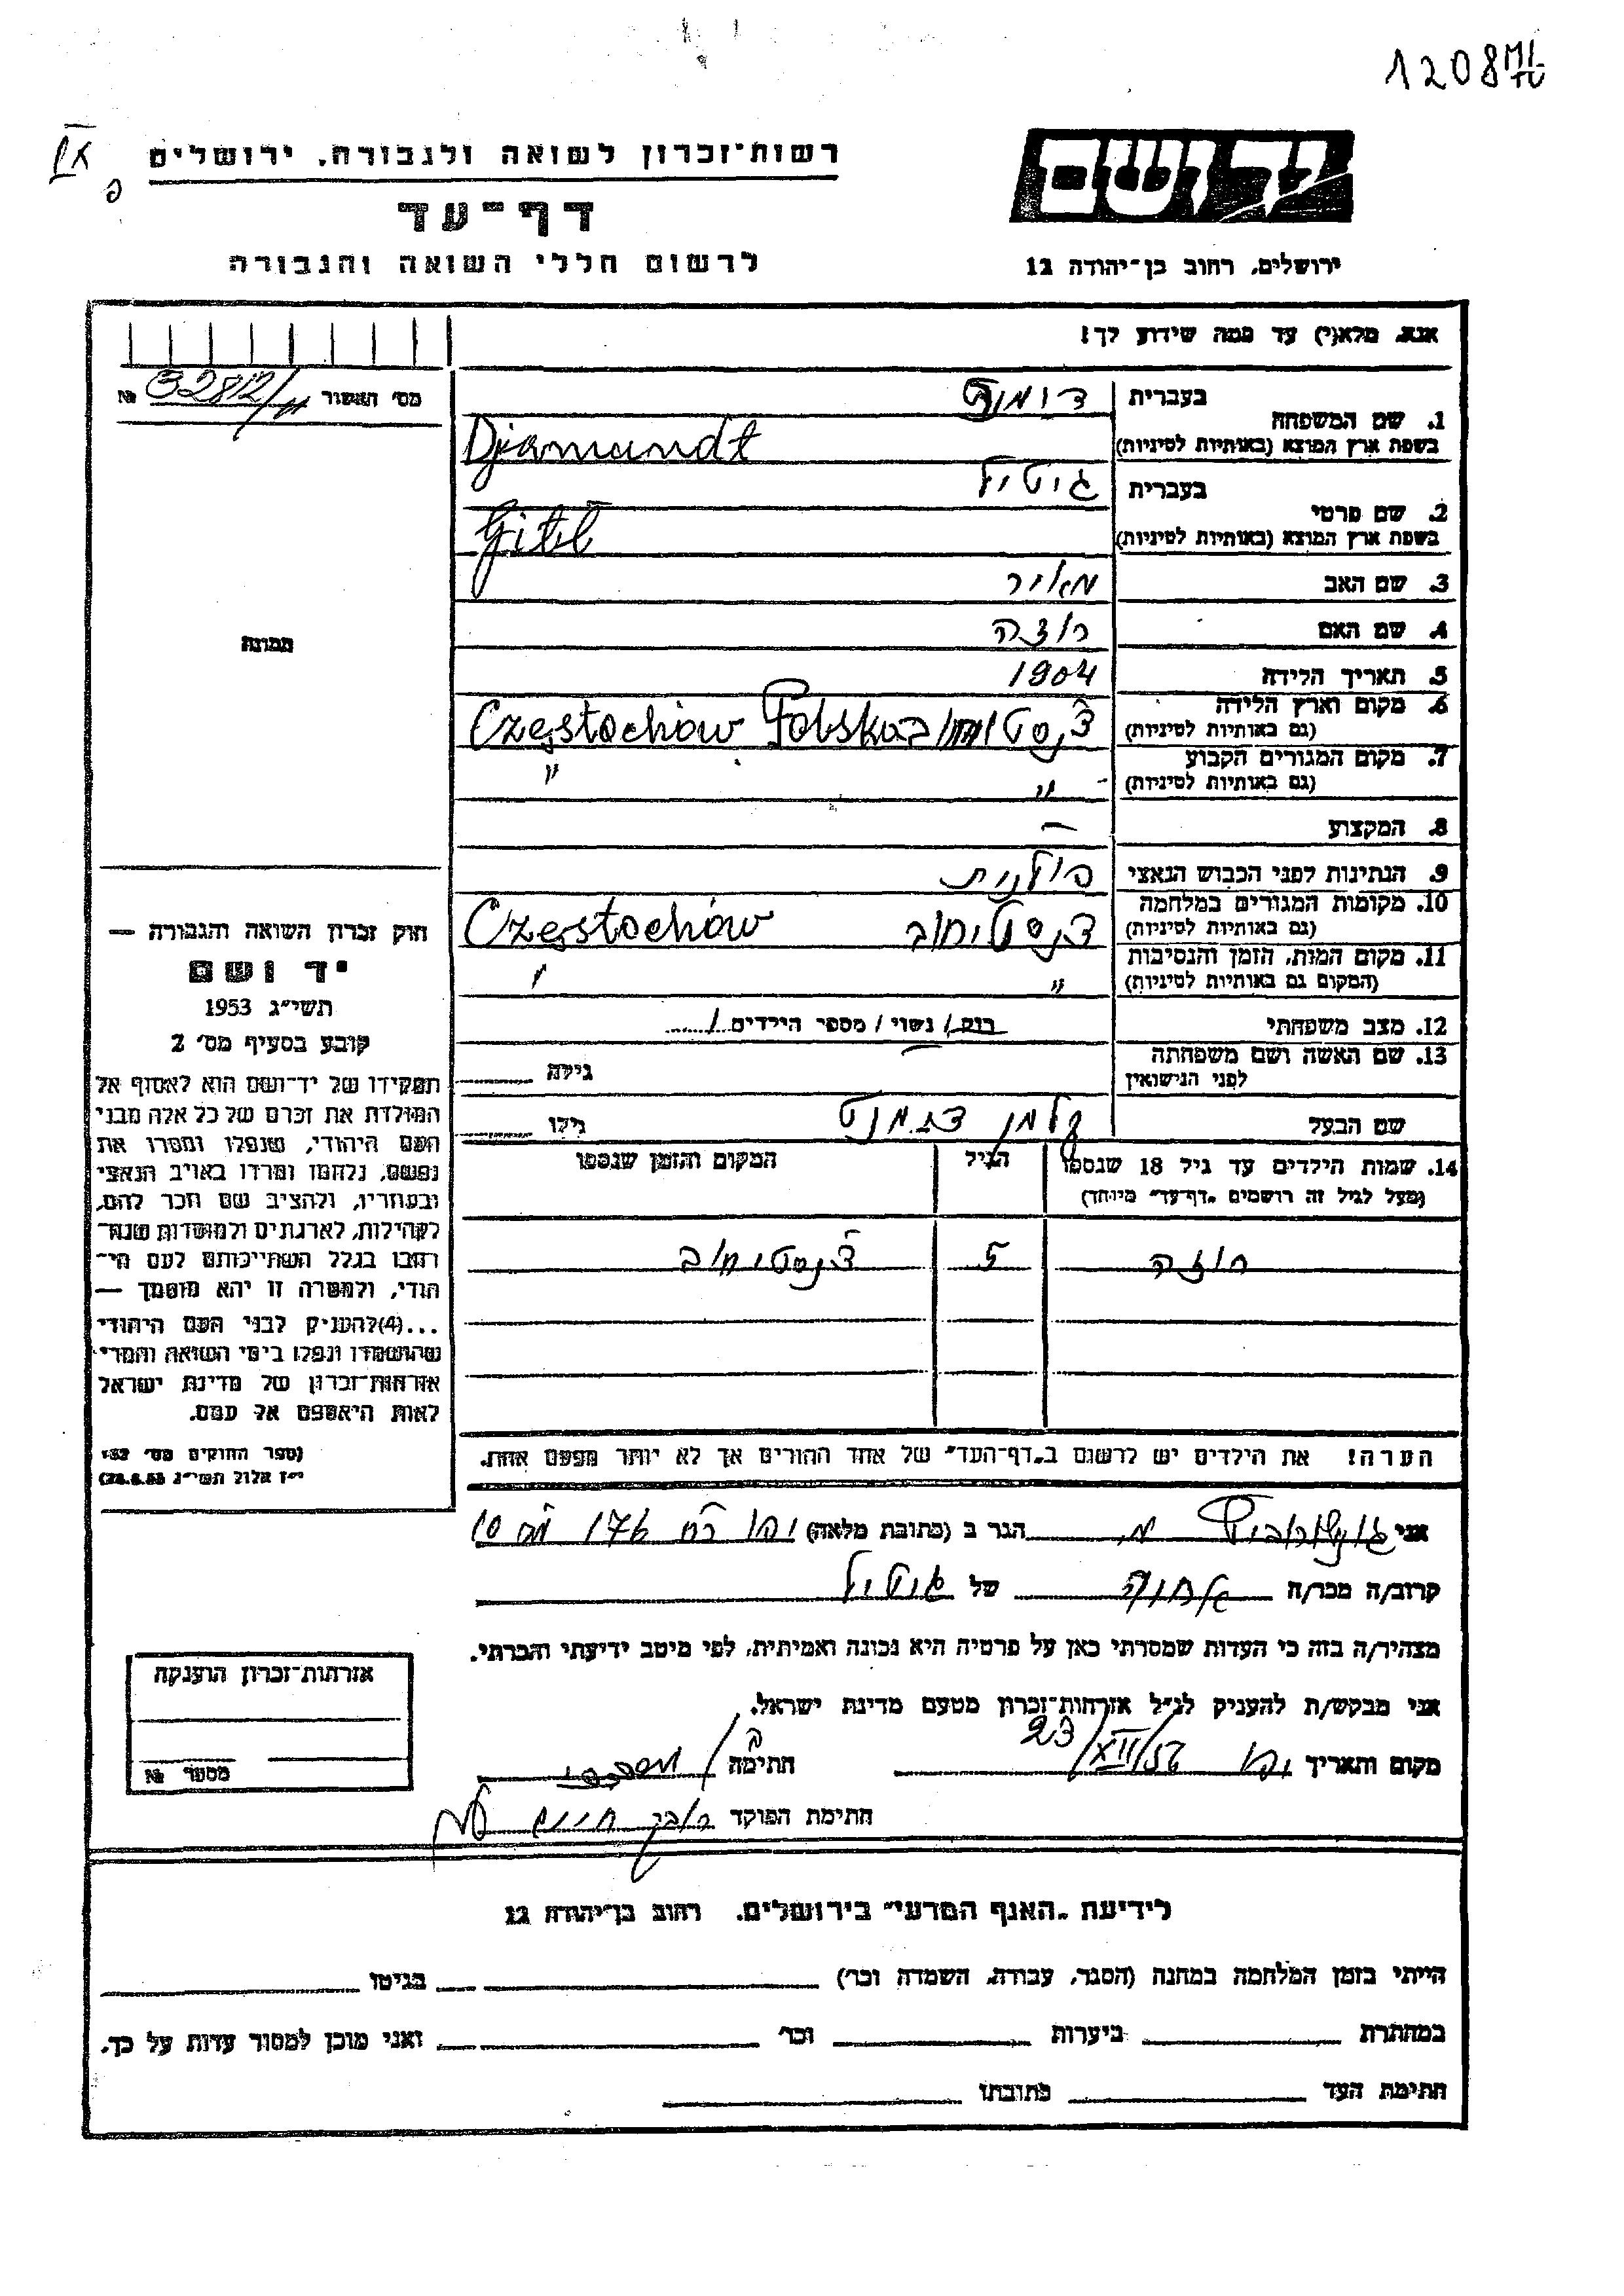 1208
רשות־זכרון לשואה ולגבורה. ירושלים
יד ושם
דף־עד
לרשום חללי השואה והגבורה
ירושלים, רחוב בן־יהודה 12
אנא, מלא(י) עד כמה שידוע לך!
מס׳ האשור № 32812/
1. שם המשפחה
בעברית
בשפת ארץ המוצא (באותיות לטיניות) Djamandt
2. שם פרטי
בעברית גיטיל
בשפת ארץ המוצא (באותיות לטיניות) Gitel
3. שם האב מאיר
4. שם האם רוזה
תמונה
5. תאריך הלידה 1904
6. מקום וארץ הלידה
(גם באותיות לטיניות) Częstochów Polska
7. מקום המגורים הקבוע
(גם באותיות לטיניות) " "
8. המקצוע —
9. הנתינות לפני הכבוש הנאצי פולנית
10. מקומות המגורים במלחמה
(גם באותיות לטיניות) צ'נסטיחוב Częstochów
11. מקום המות, הזמן והנסיבות
(המקום גם באותיות לטיניות) "
12. מצב משפחתי רווק / נשוי / מספר הילדים 1
13. שם האשה ושם משפחתה
לפני הנישואין — גילה
שם הבעל קלמן גילו
14. שמות הילדים עד גיל 18 שנספו
(מעל לגיל זה רושמים „דף־עד״ מיוחד)
הגיל
המקום והזמן שנספו
רוזה 5 צ'נסטיחוב
הערה! את הילדים יש לרשום ב„דף־העד״ של אחד ההורים אך לא יותר מפעם אחת.
חוק זכרון השואה והגבורה —
יד ושם
תשי״ג 1953
קובע בסעיף מס׳ 2
תפקידו של יד־ושם הוא לאסוף אל
המולדת את זכרם של כל אלה מבני
העם היהודי, שנפלו ומסרו את
נפשם, נלחמו ומרדו באויב הנאצי
ובעוזריו, ולהציב שם וזכר להם,
לקהילות, לארגונים ולמוסדות שנח־
רבו בגלל השתייכותם לעם הי־
הודי, ולמטרה זו יהא מוסמך —
...(4) להעניק לבני העם היהודי
שהושמדו ונפלו בימי השואה והמרי
אזרחות־זכרון של מדינת ישראל
לאות היאספם אל עמם.
(ספר החוקים מס׳ 132
י״ז אלול תשי״ג 28.8.53)
אני הגר ב (כתובת מלאה) יפו
קרוב/ה מכר/ה של גיטיל
מצהיר/ה בזה כי העדות שמסרתי כאן על פרטיה היא נכונה ואמיתית, לפי מיטב ידיעתי והכרתי.
אני מבקש/ת להעניק לנ״ל אזרחות־זכרון מטעם מדינת ישראל.
מקום ותאריך יפו 23/XII/56 חתימה
חתימת הפוקד
אזרחות־זכרון הוענקה
מספר №
לידיעת „האגף המדעי״ בירושלים. רחוב בן־יהודה 12
הייתי בזמן המלחמה במחנה (הסגר, עבודה, השמדה וכו׳) בגיטו
במחתרת ביערות וכו׳ ואני מוכן למסור עדות על כך.
חתימת העד כתובתו